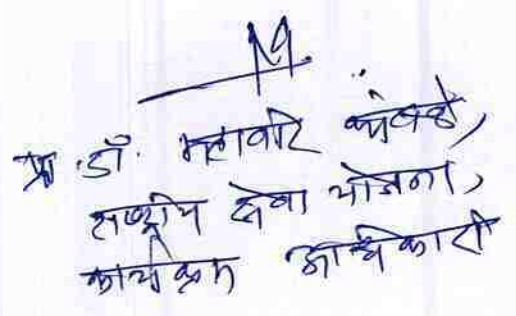 प्रा. डॉ. महावीर कांबळे,
राष्ट्रीय सेवा योजना,
कार्यक्रम अधिकारी